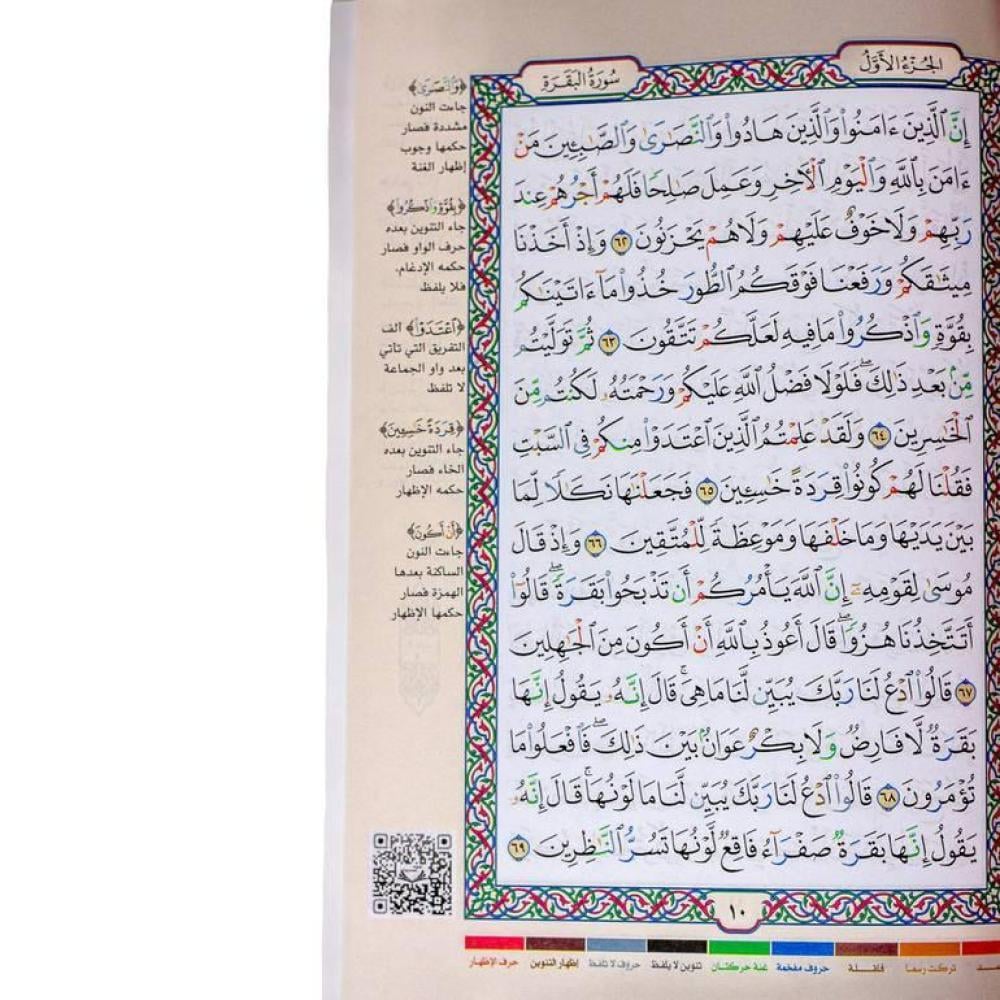 الجزء الأول
سورة البقرة
إِنَّ ٱلَّذِينَ ءَامَنُوا۟ وَٱلَّذِينَ هَادُوا۟ وَٱلنَّصَـٰرَىٰ وَٱلصَّـٰبِـِٔينَ مَنْ
ءَامَنَ بِٱللَّهِ وَٱلْيَوْمِ ٱلْـَٔاخِرِ وَعَمِلَ صَـٰلِحًا فَلَهُمْ أَجْرُهُمْ عِندَ
رَبِّهِمْ وَلَا خَوْفٌ عَلَيْهِمْ وَلَا هُمْ يَحْزَنُونَ ٦٢ وَإِذْ أَخَذْنَا
مِيثَـٰقَكُمْ وَرَفَعْنَا فَوْقَكُمُ ٱلطُّورَ خُذُوا۟ مَآ ءَاتَيْنَـٰكُم
بِقُوَّةٍ وَٱذْكُرُوا۟ مَا فِيهِ لَعَلَّكُمْ تَتَّقُونَ ٦٣ ثُمَّ تَوَلَّيْتُم
مِّنۢ بَعْدِ ذَٰلِكَ ۖ فَلَوْلَا فَضْلُ ٱللَّهِ عَلَيْكُمْ وَرَحْمَتُهُۥ لَكُنتُم مِّنَ
ٱلْخَـٰسِرِينَ ٦٤ وَلَقَدْ عَلِمْتُمُ ٱلَّذِينَ ٱعْتَدَوْا۟ مِنكُمْ فِى ٱلسَّبْتِ
فَقُلْنَا لَهُمْ كُونُوا۟ قِرَدَةً خَـٰسِـِٔينَ ٦٥ فَجَعَلْنَـٰهَا نَكَـٰلًا لِّمَا
بَيْنَ يَدَيْهَا وَمَا خَلْفَهَا وَمَوْعِظَةً لِّلْمُتَّقِينَ ٦٦ وَإِذْ قَالَ
مُوسَىٰ لِقَوْمِهِۦٓ إِنَّ ٱللَّهَ يَأْمُرُكُمْ أَن تَذْبَحُوا۟ بَقَرَةً ۖ قَالُوٓا۟
أَتَتَّخِذُنَا هُزُوًا ۖ قَالَ أَعُوذُ بِٱللَّهِ أَنْ أَكُونَ مِنَ ٱلْجَـٰهِلِينَ
٦٧ قَالُوا۟ ٱدْعُ لَنَا رَبَّكَ يُبَيِّن لَّنَا مَا هِىَ ۚ قَالَ إِنَّهُۥ يَقُولُ إِنَّهَا
بَقَرَةٌ لَّا فَارِضٌ وَلَا بِكْرٌ عَوَانٌۢ بَيْنَ ذَٰلِكَ ۖ فَٱفْعَلُوا۟ مَا
تُؤْمَرُونَ ٦٨ قَالُوا۟ ٱدْعُ لَنَا رَبَّكَ يُبَيِّن لَّنَا مَا لَوْنُهَا ۚ قَالَ إِنَّهُۥ
يَقُولُ إِنَّهَا بَقَرَةٌ صَفْرَآءُ فَاقِعٌ لَّوْنُهَا تَسُرُّ ٱلنَّـٰظِرِينَ ٦٩
﴿وَٱلنَّصَـٰرَىٰ﴾
جاءت النون
مشددة فصار
حكمها وجوب
إظهار الغنة
﴿بِقُوَّةٍ وَٱذْكُرُوا۟﴾
جاء التنوين بعده
حرف الواو فصار
حكمه الإدغام،
فلا يلفظ
﴿ٱعْتَدَوْا۟﴾ ألف
التفريق التي تأتي
بعد واو الجماعة
لا تلفظ
﴿قِرَدَةً خَـٰسِـِٔينَ﴾
جاء التنوين بعده
الخاء فصار
حكمه الإظهار
﴿أَنْ أَكُونَ﴾
جاءت النون
الساكنة بعدها
الهمزة فصار
حكمها الإظهار
١٠
تركت رسما
قلقلة
حروف مفخمة
غنة حركتان
تنوين لا يلفظ
حروف لا تلفظ
إظهار التنوين
حرف الإظهار